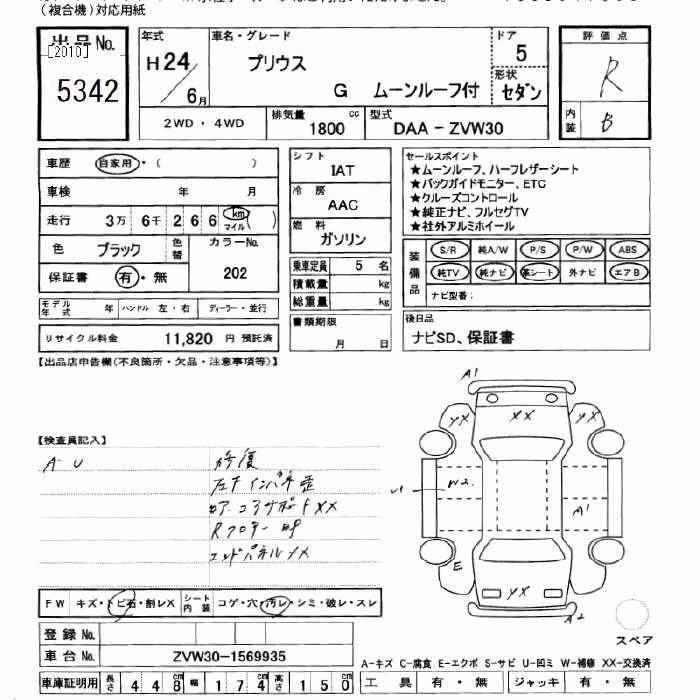 （複合機）対応用紙
出品No.
[2010]
5342
年式
H24
6月
車名・グレード
プリウス
G ムーンルーフ付
ドア
5
形状
セダン
評価点
R
内装
B
2WD・4WD
排気量
1800 cc
型式
DAA－ZVW30
車歴 自家用・（ ）
車検 年 月
走行 3万 6千 2 6 6 km マイル ( )
色 ブラック 色替
カラーNo.
202
保証書 有・無
モデル年式 年 ハンドル 左・右 ディーラー・並行
リサイクル料金 11,820 円 預託済
シフト
IAT
冷房
AAC
燃料
ガソリン
乗車定員 5 名
積載量 kg
総重量 kg
書類期限
月 日
セールスポイント
★ムーンルーフ、ハーフレザーシート
★バックガイドモニター、ETC
★クルーズコントロール
★純正ナビ、フルセグTV
★社外アルミホイール
装備品
S/R 純A/W P/S P/W ABS
純TV 純ナビ 革シート 外ナビ エアB
ナビ型番：
後日品
ナビSD、保証書
【出品店申告欄(不良箇所・欠品・注意事項等)】
【検査員記入】
A-U
修復
XX
Rフロアー
エンドパネルXX
A1
YX XX YX
U1
W2
A1
E
YX
A2
スペア
FW キズ・トビ石・割レX シート内装 コゲ・穴・汚レ・シミ・破レ・スレ
登録No.
車台No. ZVW30-1569935
車庫証明用 長さ 448cm 幅 174cm 高さ 150cm
A-キズ C-腐食 E-エクボ S-サビ U-凹ミ W-補修 XX-交換済
工具 有・無 ジャッキ 有・無